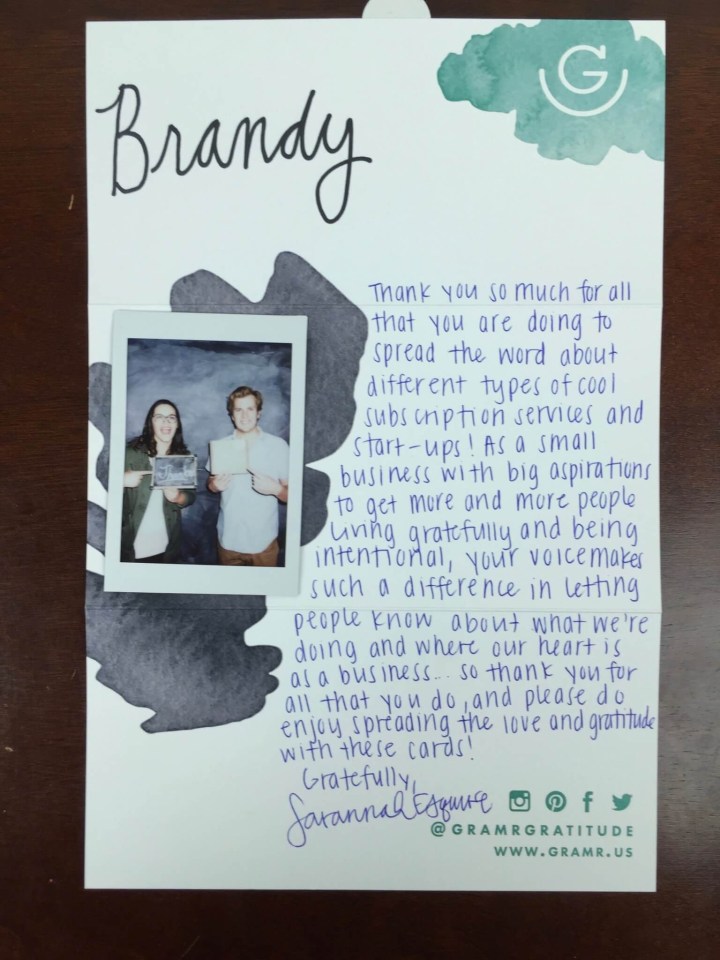 G
Brandy
Thank you so much for all
that you are doing to
spread the word about
different types of cool
subscription services and
start-ups! As a small
business with big aspirations
to get more and more people
living gratefully and being
intentional, your voice makes
such a difference in letting
people know about what we're
doing and where our heart is
as a business... so thank you for
all that you do, and please do
enjoy spreading the love and gratitude
with these cards!
Gratefully,
Savannah Esquire
@GRAMRGRATITUDE
WWW.GRAMR.US